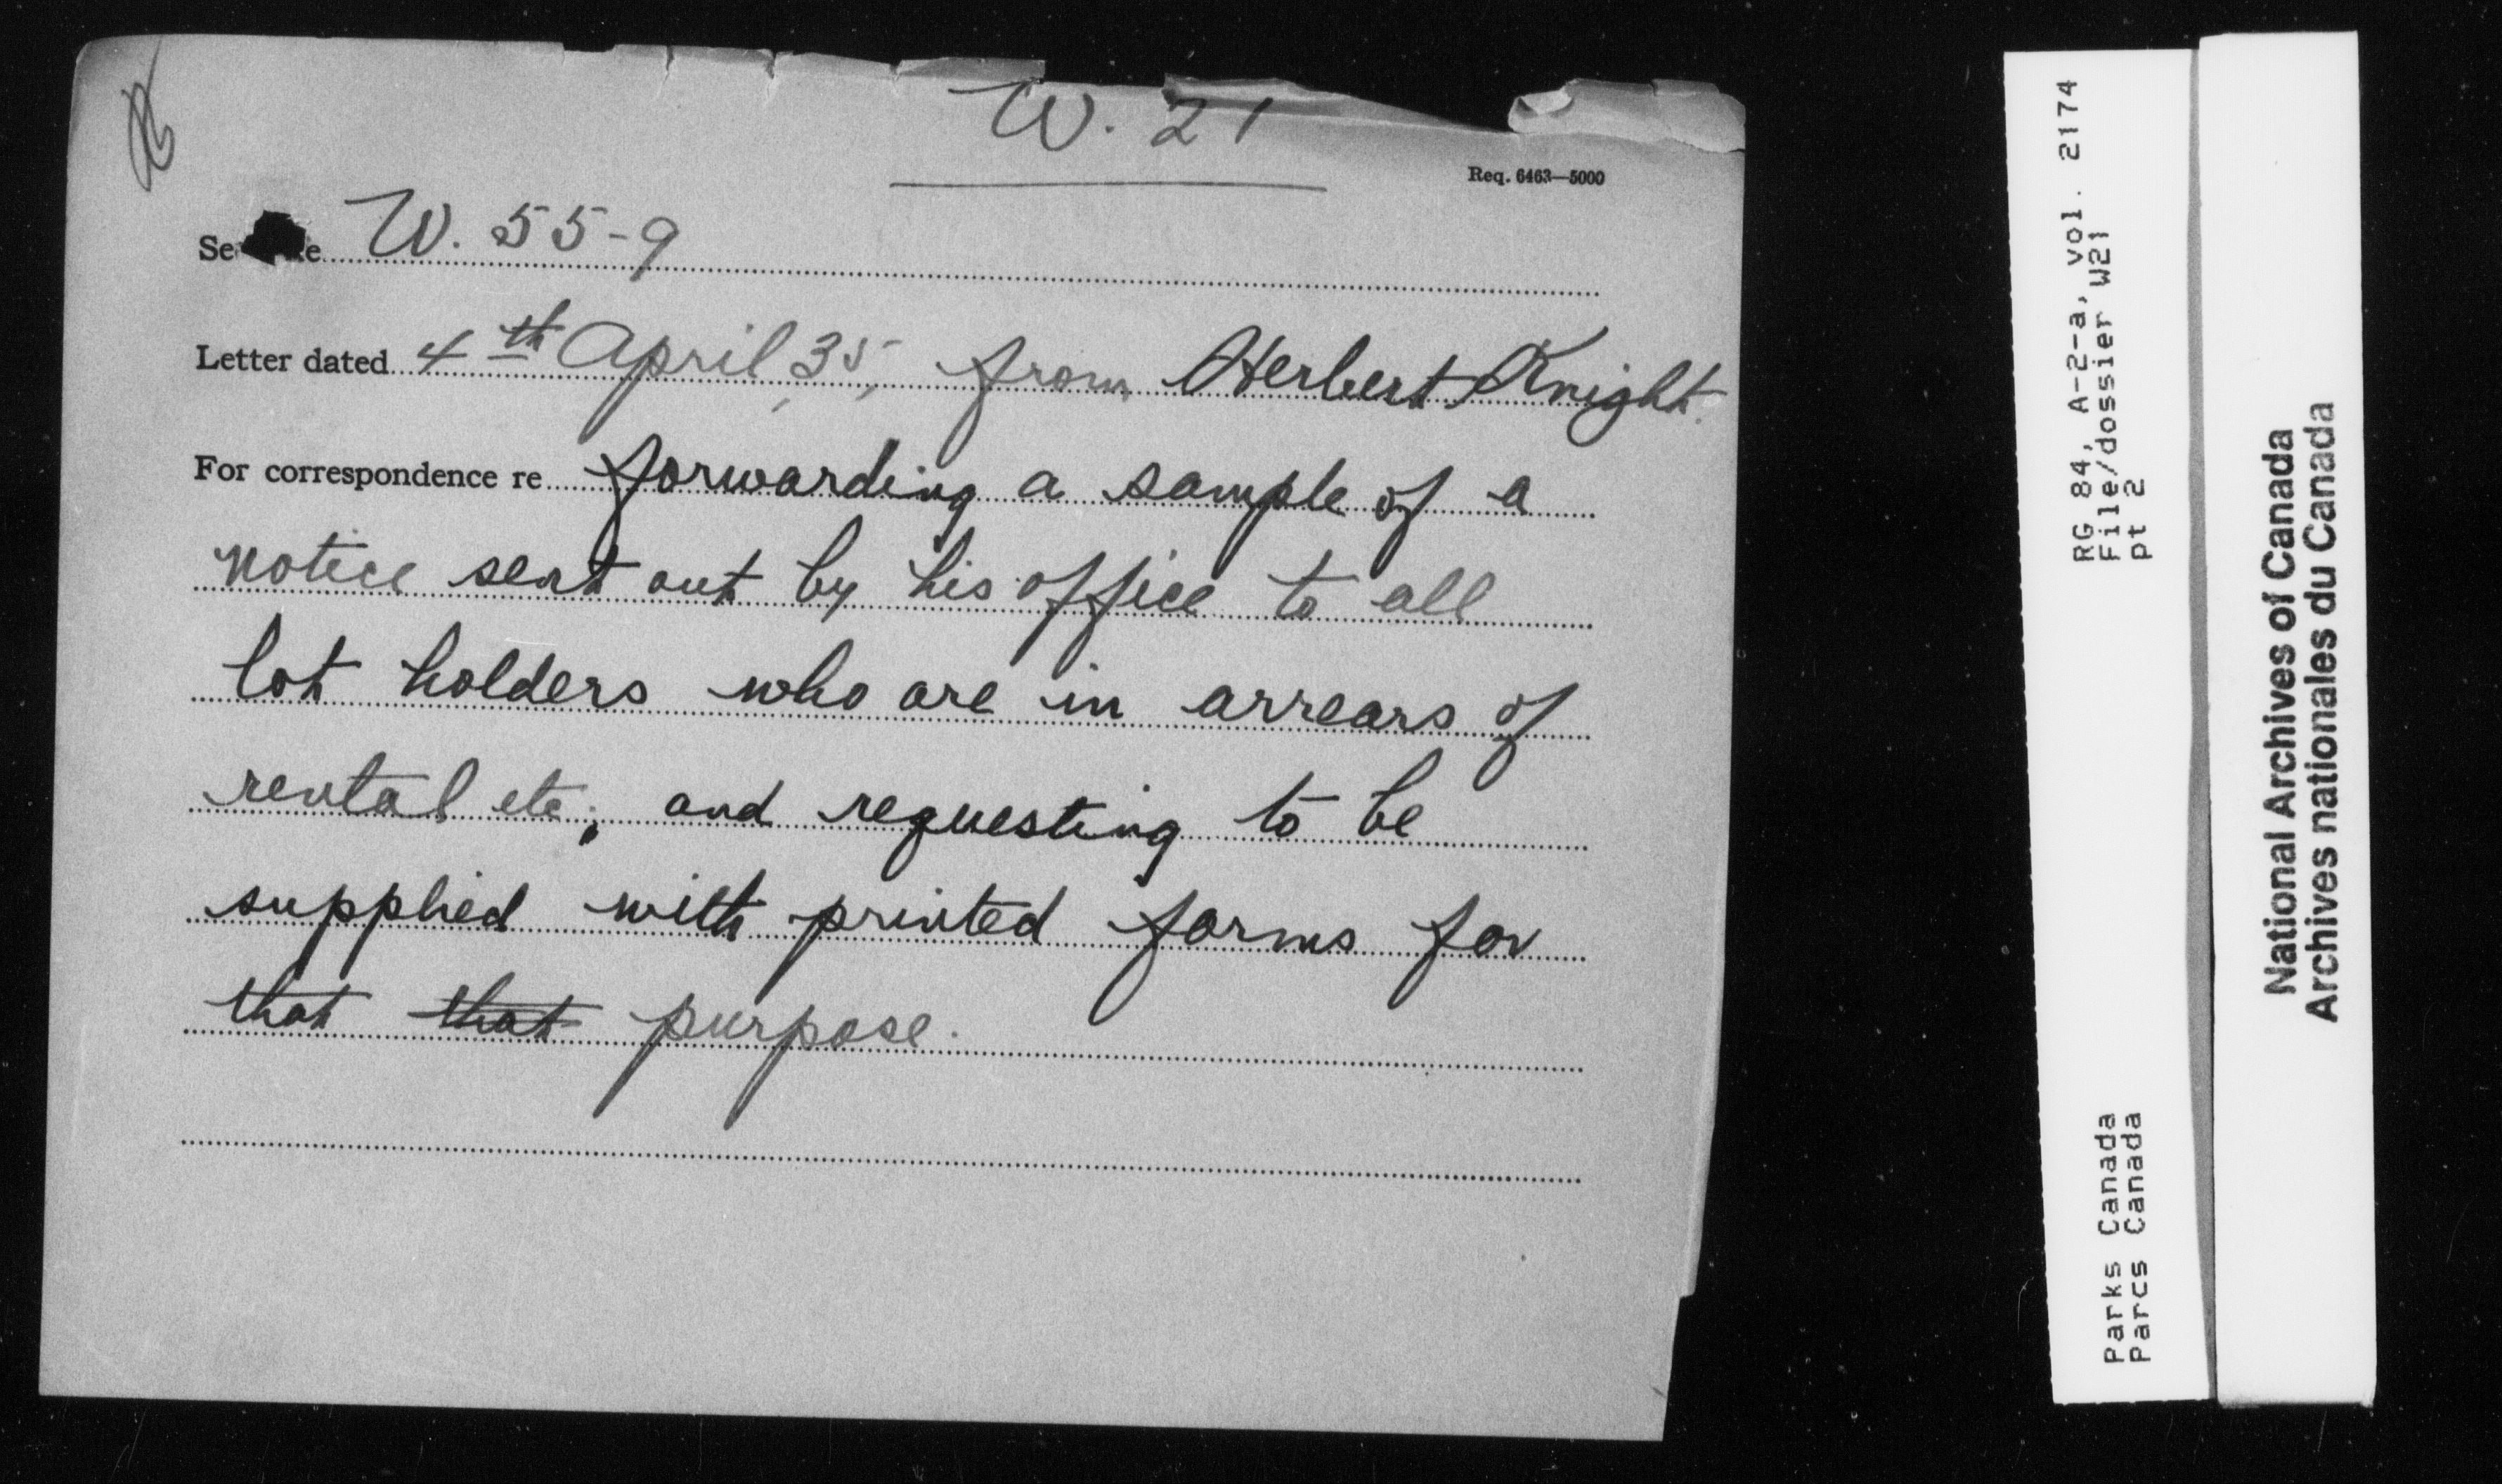 W. 21
Req. 6463—5000
W. 55-9
Letter dated 4th April, 35, from Herbert Knight.
For correspondence re forwarding a sample of a
notice sent out by his office to all
lot holders who are in arrears of
rental etc; and requesting to be
supplied with printed forms for
that that purpose.
RG 84, A-2-a, vol. 2174
File/dossier W21
pt 2
Parks Canada
Parcs Canada
National Archives of Canada
Archives nationales du Canada